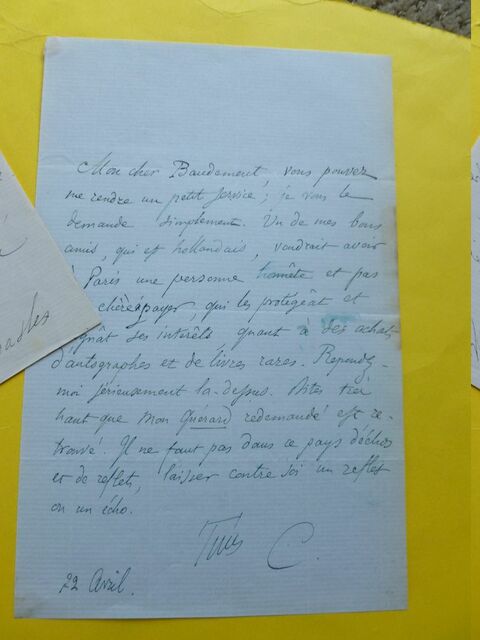 Mon cher Baudement, vous pouvez
me rendre un petit service; je vous le
demande simplement. Un de mes bons
amis, qui est hollandais, voudrait avoir
à Paris une personne honnête et pas
chère à payer, qui les protégeât et
gnât ses intérêts quant à des achats
d'autographes et de livres rares. Repondez-
moi sérieusement la-dessus. Dites très
haut que mon Querard redemandé est re-
trouvé. Il ne faut pas dans ce pays d'échos
et de reflets, laisser contre soi un reflet
ou un écho.
C.
22 Avril.